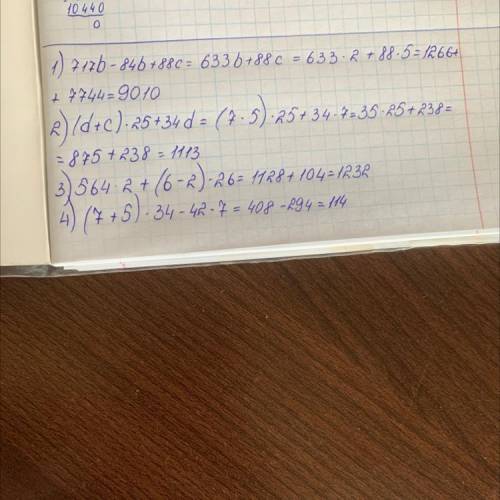 10440
0
1) 717b-84b+88c=633b+88c=633·2+88·5=1266+
+7744=9010
2) (d+c)·25+34d=(7·5)·25+34·7=35·25+238=
=875+238=1113
3) 564·2+(6-2)·26=1128+104=1232
4) (7+5)·34-42·7=408-294=114